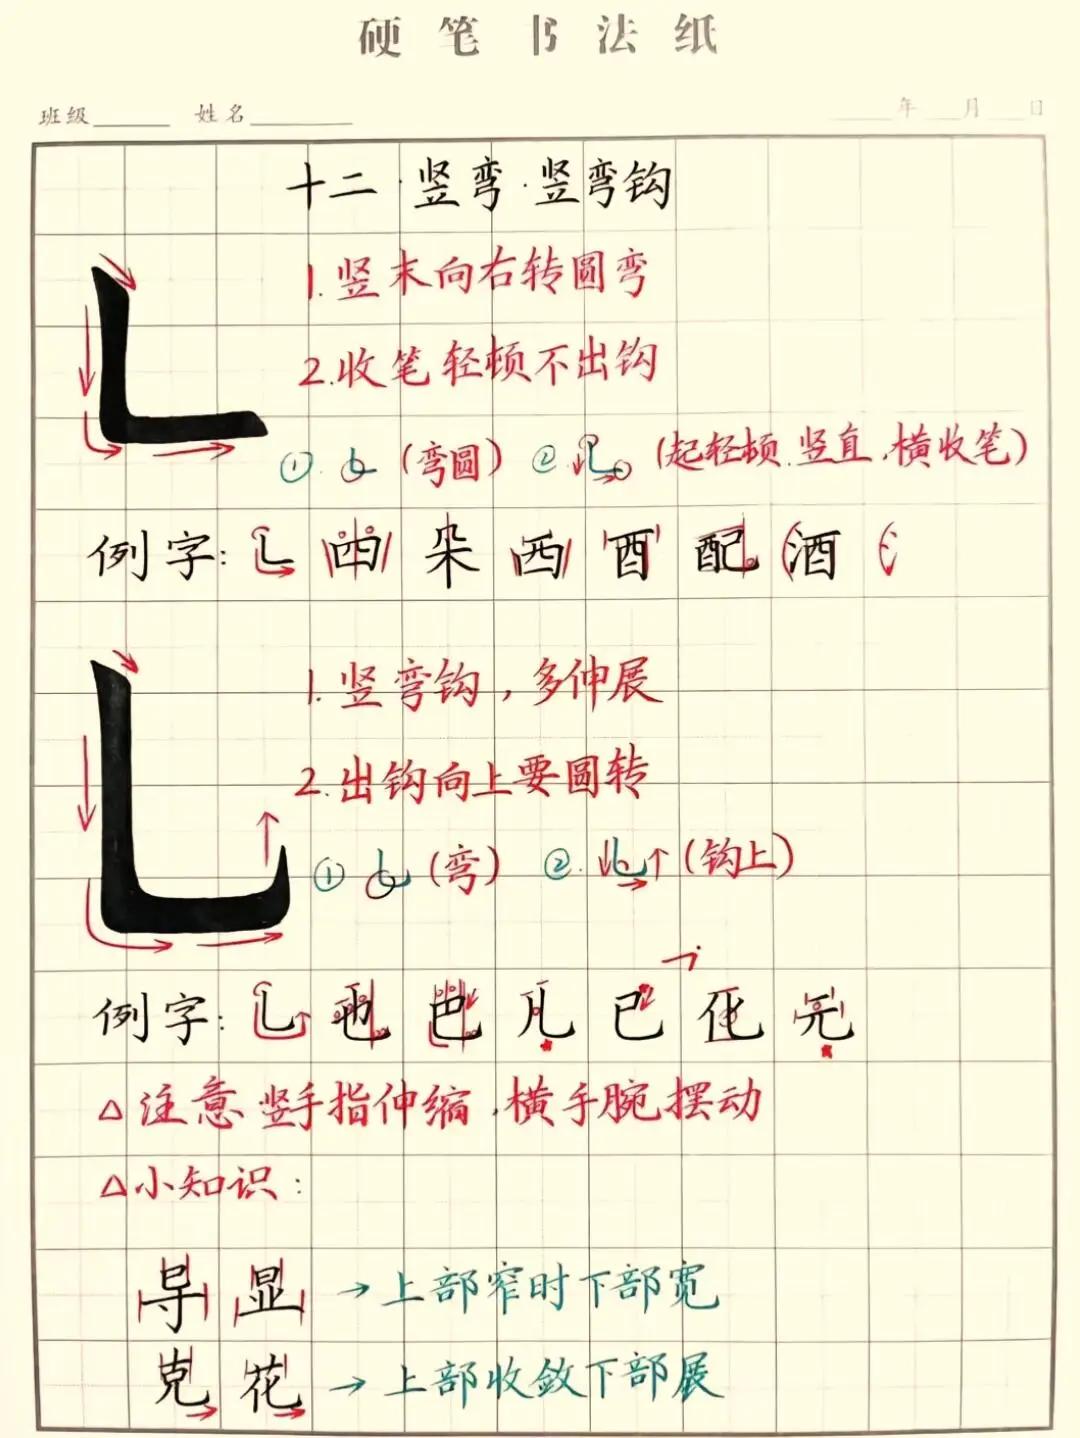 硬笔书法纸
班级 姓名 年 月 日
十二·竖弯·竖弯钩
1.竖末向右转圆弯
2.收笔轻顿不出钩
①.(弯圆) ②.(起轻顿.竖直,横收笔)
例字: 四 朵 西 酉 配 酒
1.竖弯钩,多伸展
2.出钩向上要圆转
①(弯) ②.(钩上)
例字: 也 巴 儿 已 化 元
△注意竖手指伸缩,横手腕摆动
△小知识:
导 显 →上部窄时下部宽
克 花 →上部收敛下部展